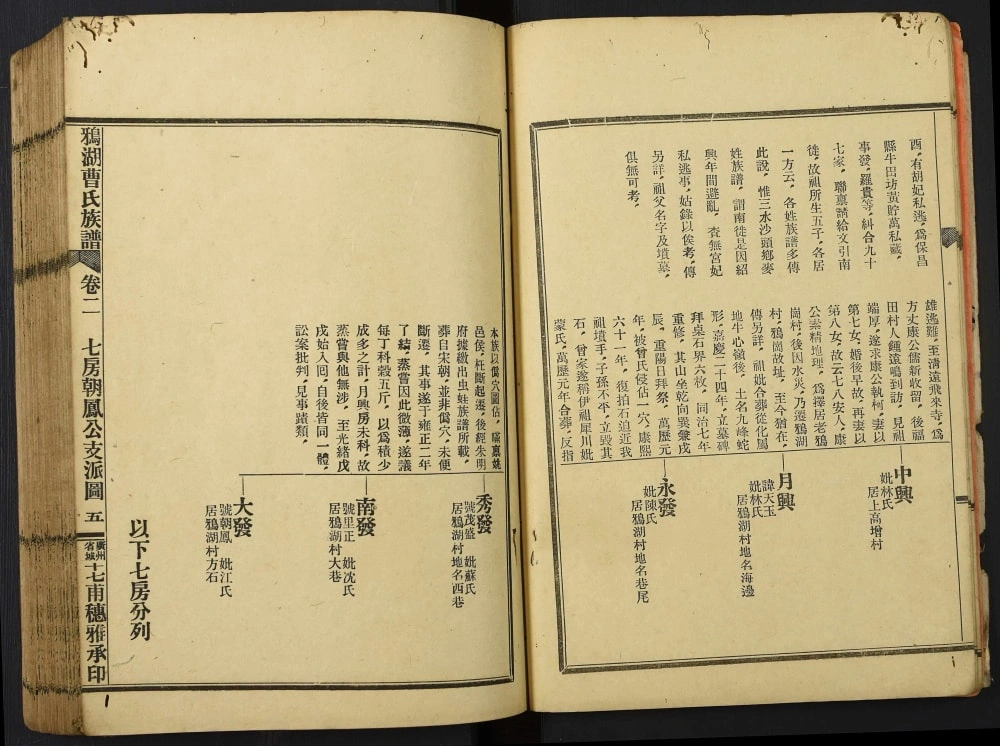 酉，有胡妃私逃，爲保昌
縣牛田坊黃貯萬私藏，
事發，羅貴等，糾合九十
七家，聯稟請給文引南
徙，故祖所生五子，各居
一方云，各姓族譜多傳
此說，惟三水沙頭鄉麥
姓族譜，謂南徙是因紹
興年間避亂，查無宮妃
私逃事，姑錄以俟考，傳
另詳，祖父名字及墳墓，
俱無可考，
雄逃難，至清遠飛來寺，爲
方丈康公儒新收留，後福
田村人鍾遠鳴到訪，見祖
端厚，遂求康公執柯，妻以
第七女，婚後早故，再妻以
第八女，故云七八安人，康
公素精地理，爲擇居老鴉
崗村，後因水災，乃遷鴉湖
村鴉崗故址，至今猶在，
傳另詳，祖妣合葬從化屬
地牛心嶺後，土名九峰蛇
形，嘉慶二十四年，立墓碑
拜桌石界六枚，同治七年
重修，其山坐乾向巽兼戌
辰，重陽日拜祭，萬歷元
年，被曾氏侵佔一穴，康熙
六十一年，復拍石迫近我
祖墳手，子孫不平，立毀其
石，曾家遂稱伊祖犀川妣
蒙氏，萬歷元年合葬，反指
中興
妣林氏
居上高增村
月興
諱天玉
妣林氏
居鴉湖村地名海邊
永發
妣陳氏
居鴉湖村地名巷尾
本族以僞穴圖佔，
邑侯，枉斷起遷，後經朱明
府據繳出虫蛀族譜所載，
葬自宋朝，並非僞穴，未便
斷遷，其事遂于雍正二年
了結，蒸嘗因此微薄，遂議
每丁科穀五斤，以爲積少
成多之計，月興房未科，故
蒸嘗與他無涉，至光緒戊
戌始入囘，自後皆同一體，
訟案批判，見事蹟類，
秀發
號茂盛 妣蘇氏
居鴉湖村地名西巷
南發
號里正 妣沈氏
居鴉湖村大巷
大發
號朝鳳 妣江氏
居鴉湖村方石
以下七房分列
鴉湖曹氏族譜 卷二 七房朝鳳公支派圖 五 廣州省城十七甫穗雅承印